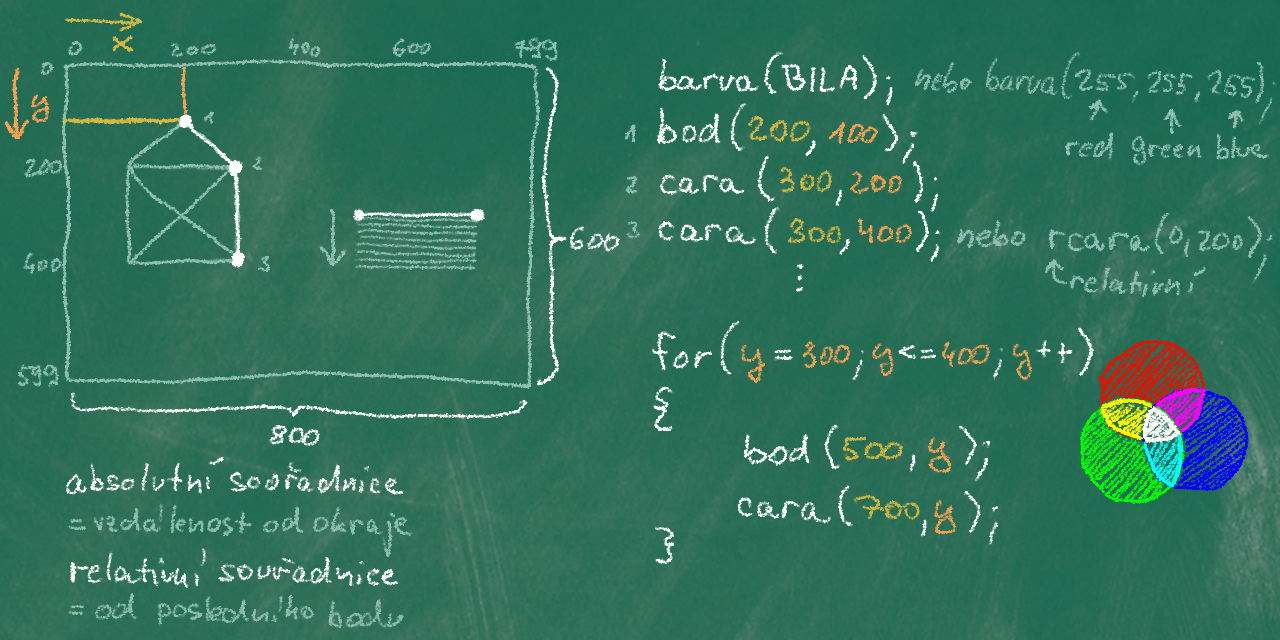 x
0 200 400 600 799
0
y
1
200
2
3
400
599
600
800
absolutní souřadnice
=vzdálenost od okraje
relativní souřadnice
= od posledního bodu
barva(BILA); nebo barva(255, 255, 255);
red green blue
1 bod(200, 100);
2 cara (300,200);
3 cara(300,400); nebo rcara(0,200);
relativní
⋮
for(y=300;y<=400;y++)
{
bod(500,y);
cara(700,y);
}